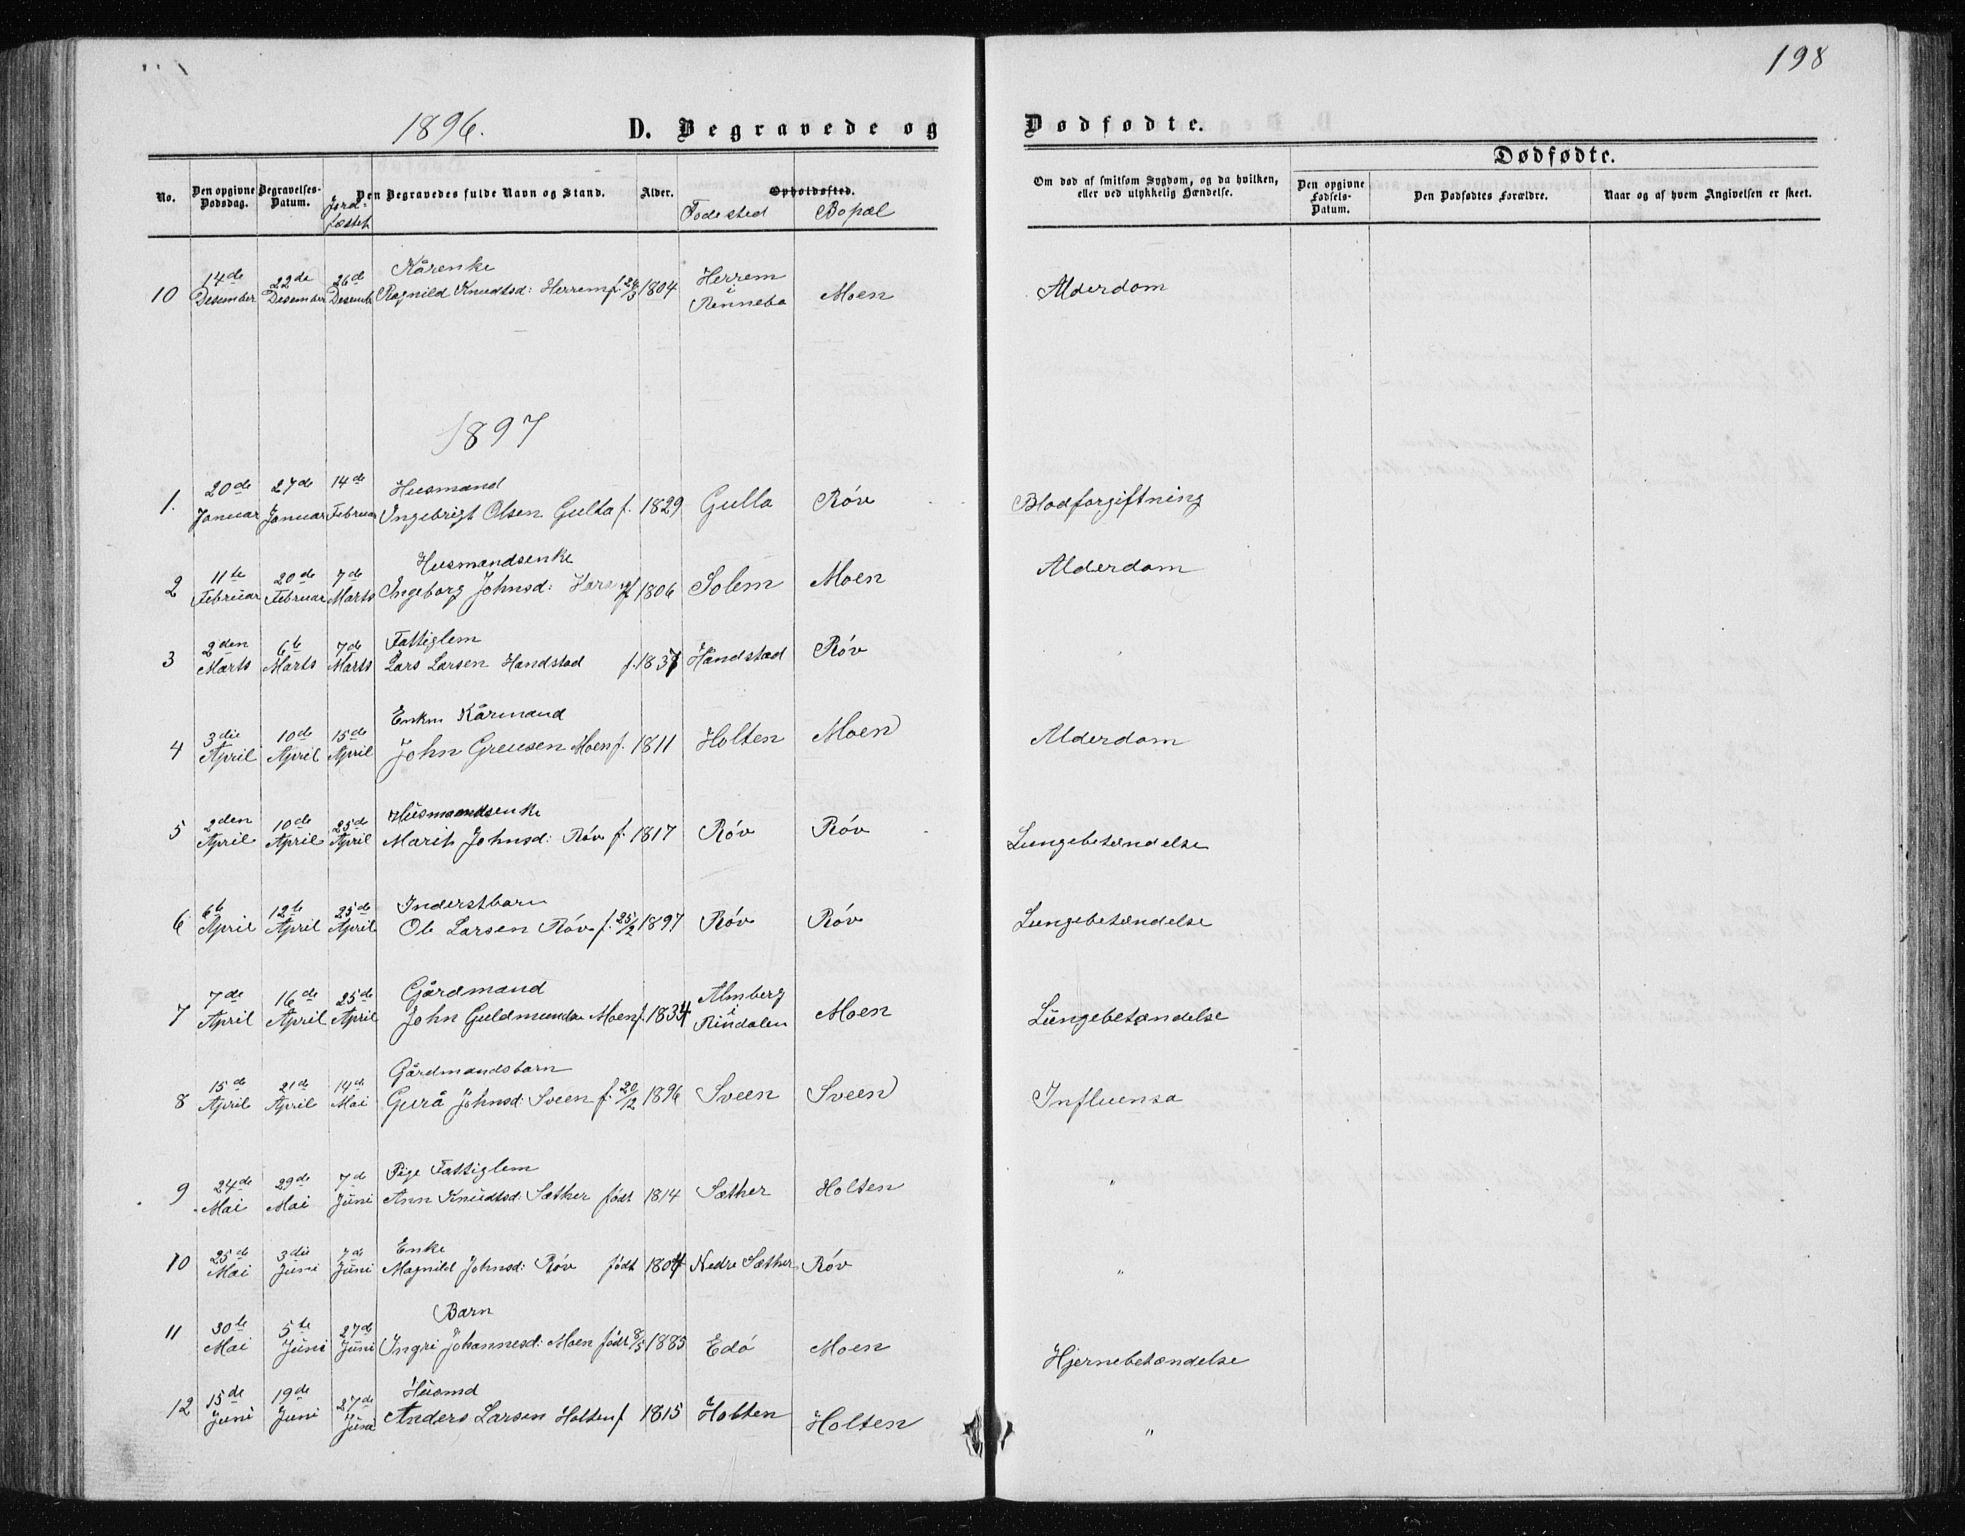 198
1896. D. Begravede og Dødfødte.
Dødfødte.
No. Den opgivne Dødsdag. Begravelses-Datum. Jord-fæstet Den Begravedes fulde Navn og Stand. Alder. Opholdssted. Om død af smitsom Sygdom, og da hvilken, eller ved ulykkelig Hændelse. Den opgivne Fødsels-Datum. Den Dødfødtes Forældre. Naar og af hvem Angivelsen er skeet.
Fødested Bopæl
Kårenke
10 14de Desember 22de Desember 26de Desemb Ragnild Knudtsd: Herrem f. 1804 Herrem i Renneba Moen Alderdom
1897
Husmand
1. 20de Januar 27de Januar 14de Februar Ingebrigt Olsen Gulla f. 1829 Gulla Røv Blodforgiftning
Husmandsenke
2 11te Februar 20de Februar 7de Marts Ingeborg Johnsd: 1806 Solem Moen Alderdom
Fattiglem
3 2den Marts 6te Marts 7de Marts Lars Larsen Handstad f. 1837 Handstad Røv
Enkm Kårmand
4 3die April 10de April 15de April John Moen f. 1811 Holten Moen Alderdom
Husmandsenke
5 2den April 10de April 25de April Marit Johnsd: Røv f. 1817 Røv Røv Lungebetændelse
Inderstbarn
6 6te April 12te April 25de April Ole Larsen Røv f. 25/2 1897 Røv Røv Lungebetændelse
Gårdmand
7 7de April 16de April 25de April John Guldmundsn Moen f. 1834 Almberg i Rindalen Moen Lungebetændelse
Gårdmandsbarn
8 15de April 21de April 14de Mai Gurå Johnsd: Sveen f. 20/12 1896 Sveen Sveen Influensa
Pige Fattiglem
9 24de Mai 29de Mai 7de Juni Ann Knudtsd: Sæther født 1814 Sæther Holten "
Enke
10 25de Mai 3die Juni 7de Juni Magnild Johnsd: Røv født 1804 Nedre Sæther Røv "
Barn
11 30te Mai 5te Juni 27de Juni Ingri Johannesd: Moen født 8/5 1885 Edø Moen Hjernebetændelse
Husmd
12 15de Juni 19de Juni 27de Juni Anders Larsen Holten f. 1815 Holten Holten "